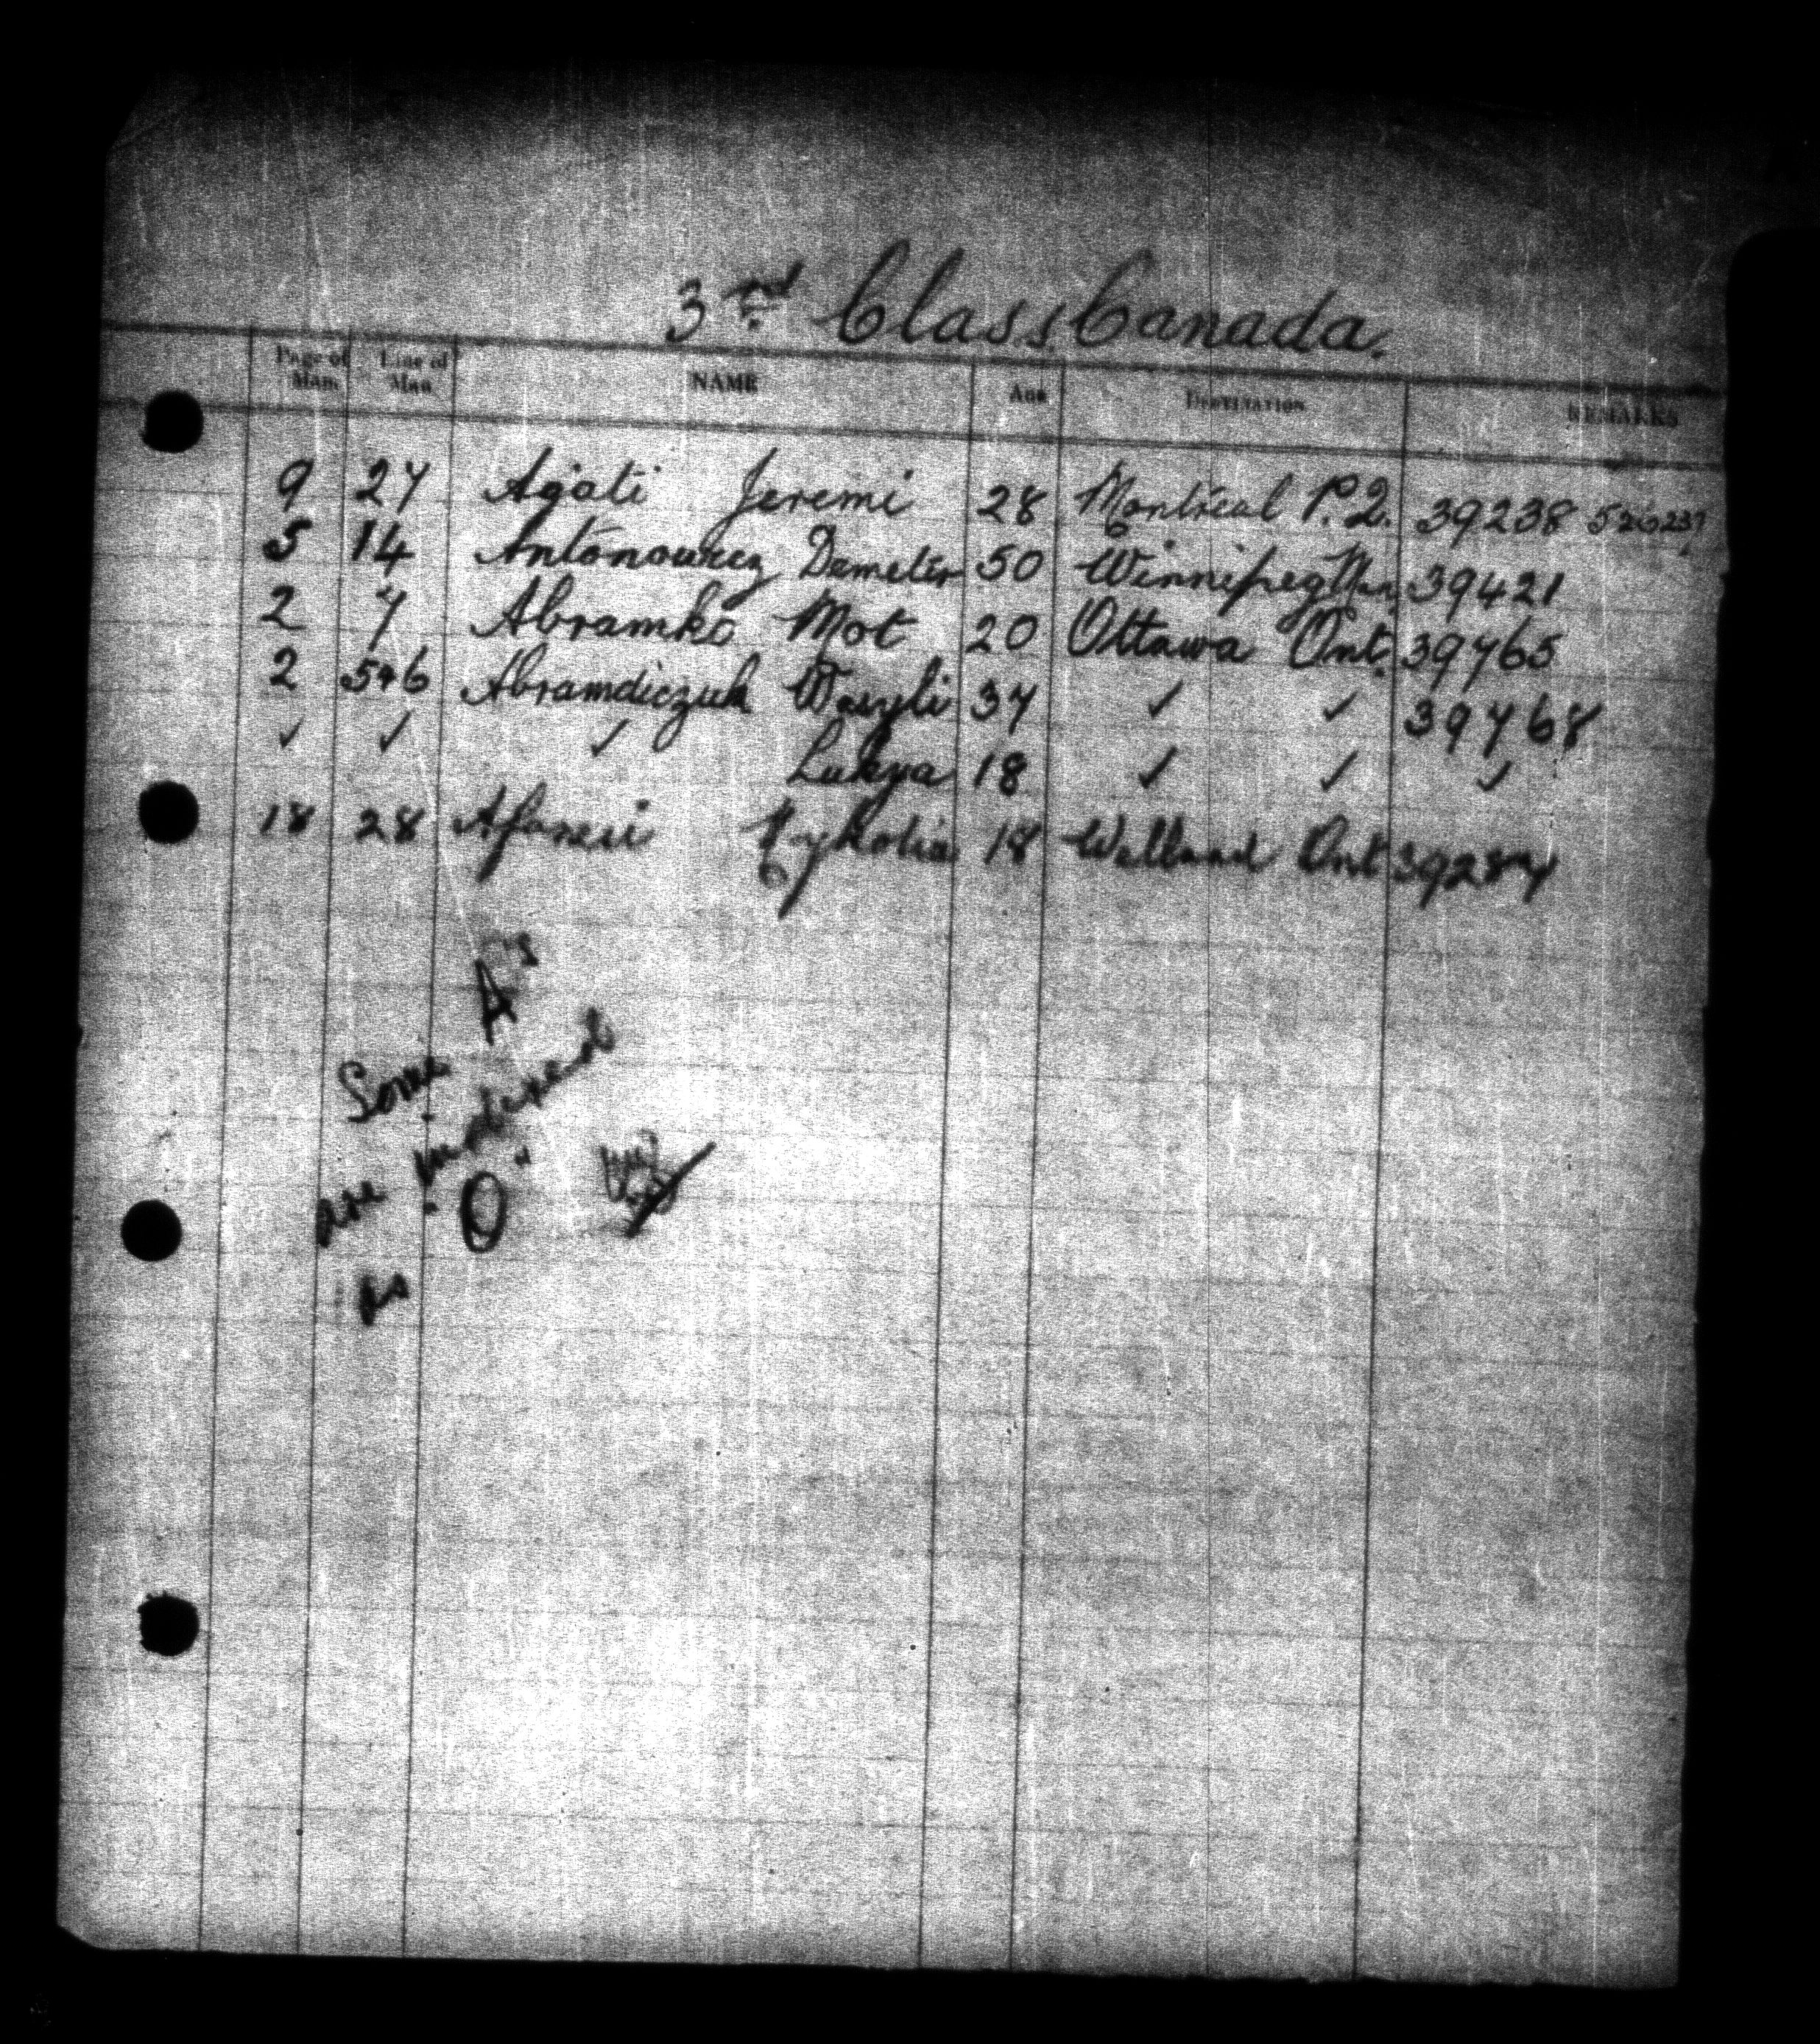 3rd Class Canada.
Page of Man. Line of Man. NAME AGE DESTINATION REMARKS
9 27 Agati Jeremi 28 Montreal P.Q. 39238 526237
5 14 Antonowicz Demeter 50 Winnipeg Man. 39421
2 7 Abramko Mot 20 Ottawa Ont. 39765
2 5+6 Abramdiczuk Wasyli 37 ✓ ✓ 39768
✓ ✓ ✓ Lukya 18 ✓ ✓ ✓
18 28 18 Welland Ont 39287
Some A's
are indexed
as "O"